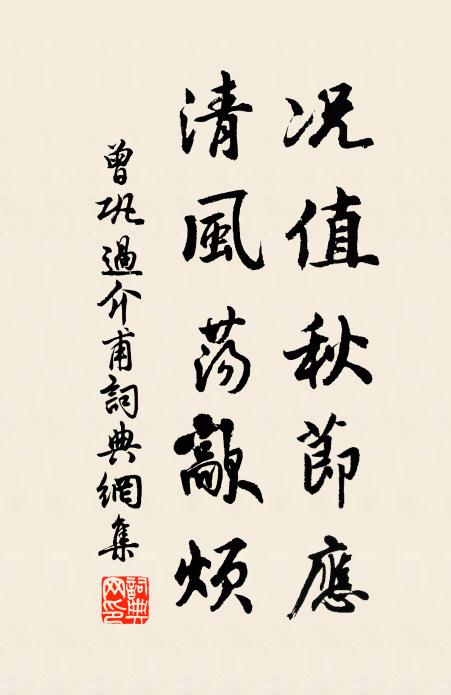 况值秋節應
清風蕩歊煩
曾巩過介甫詞典網集
詞典网印